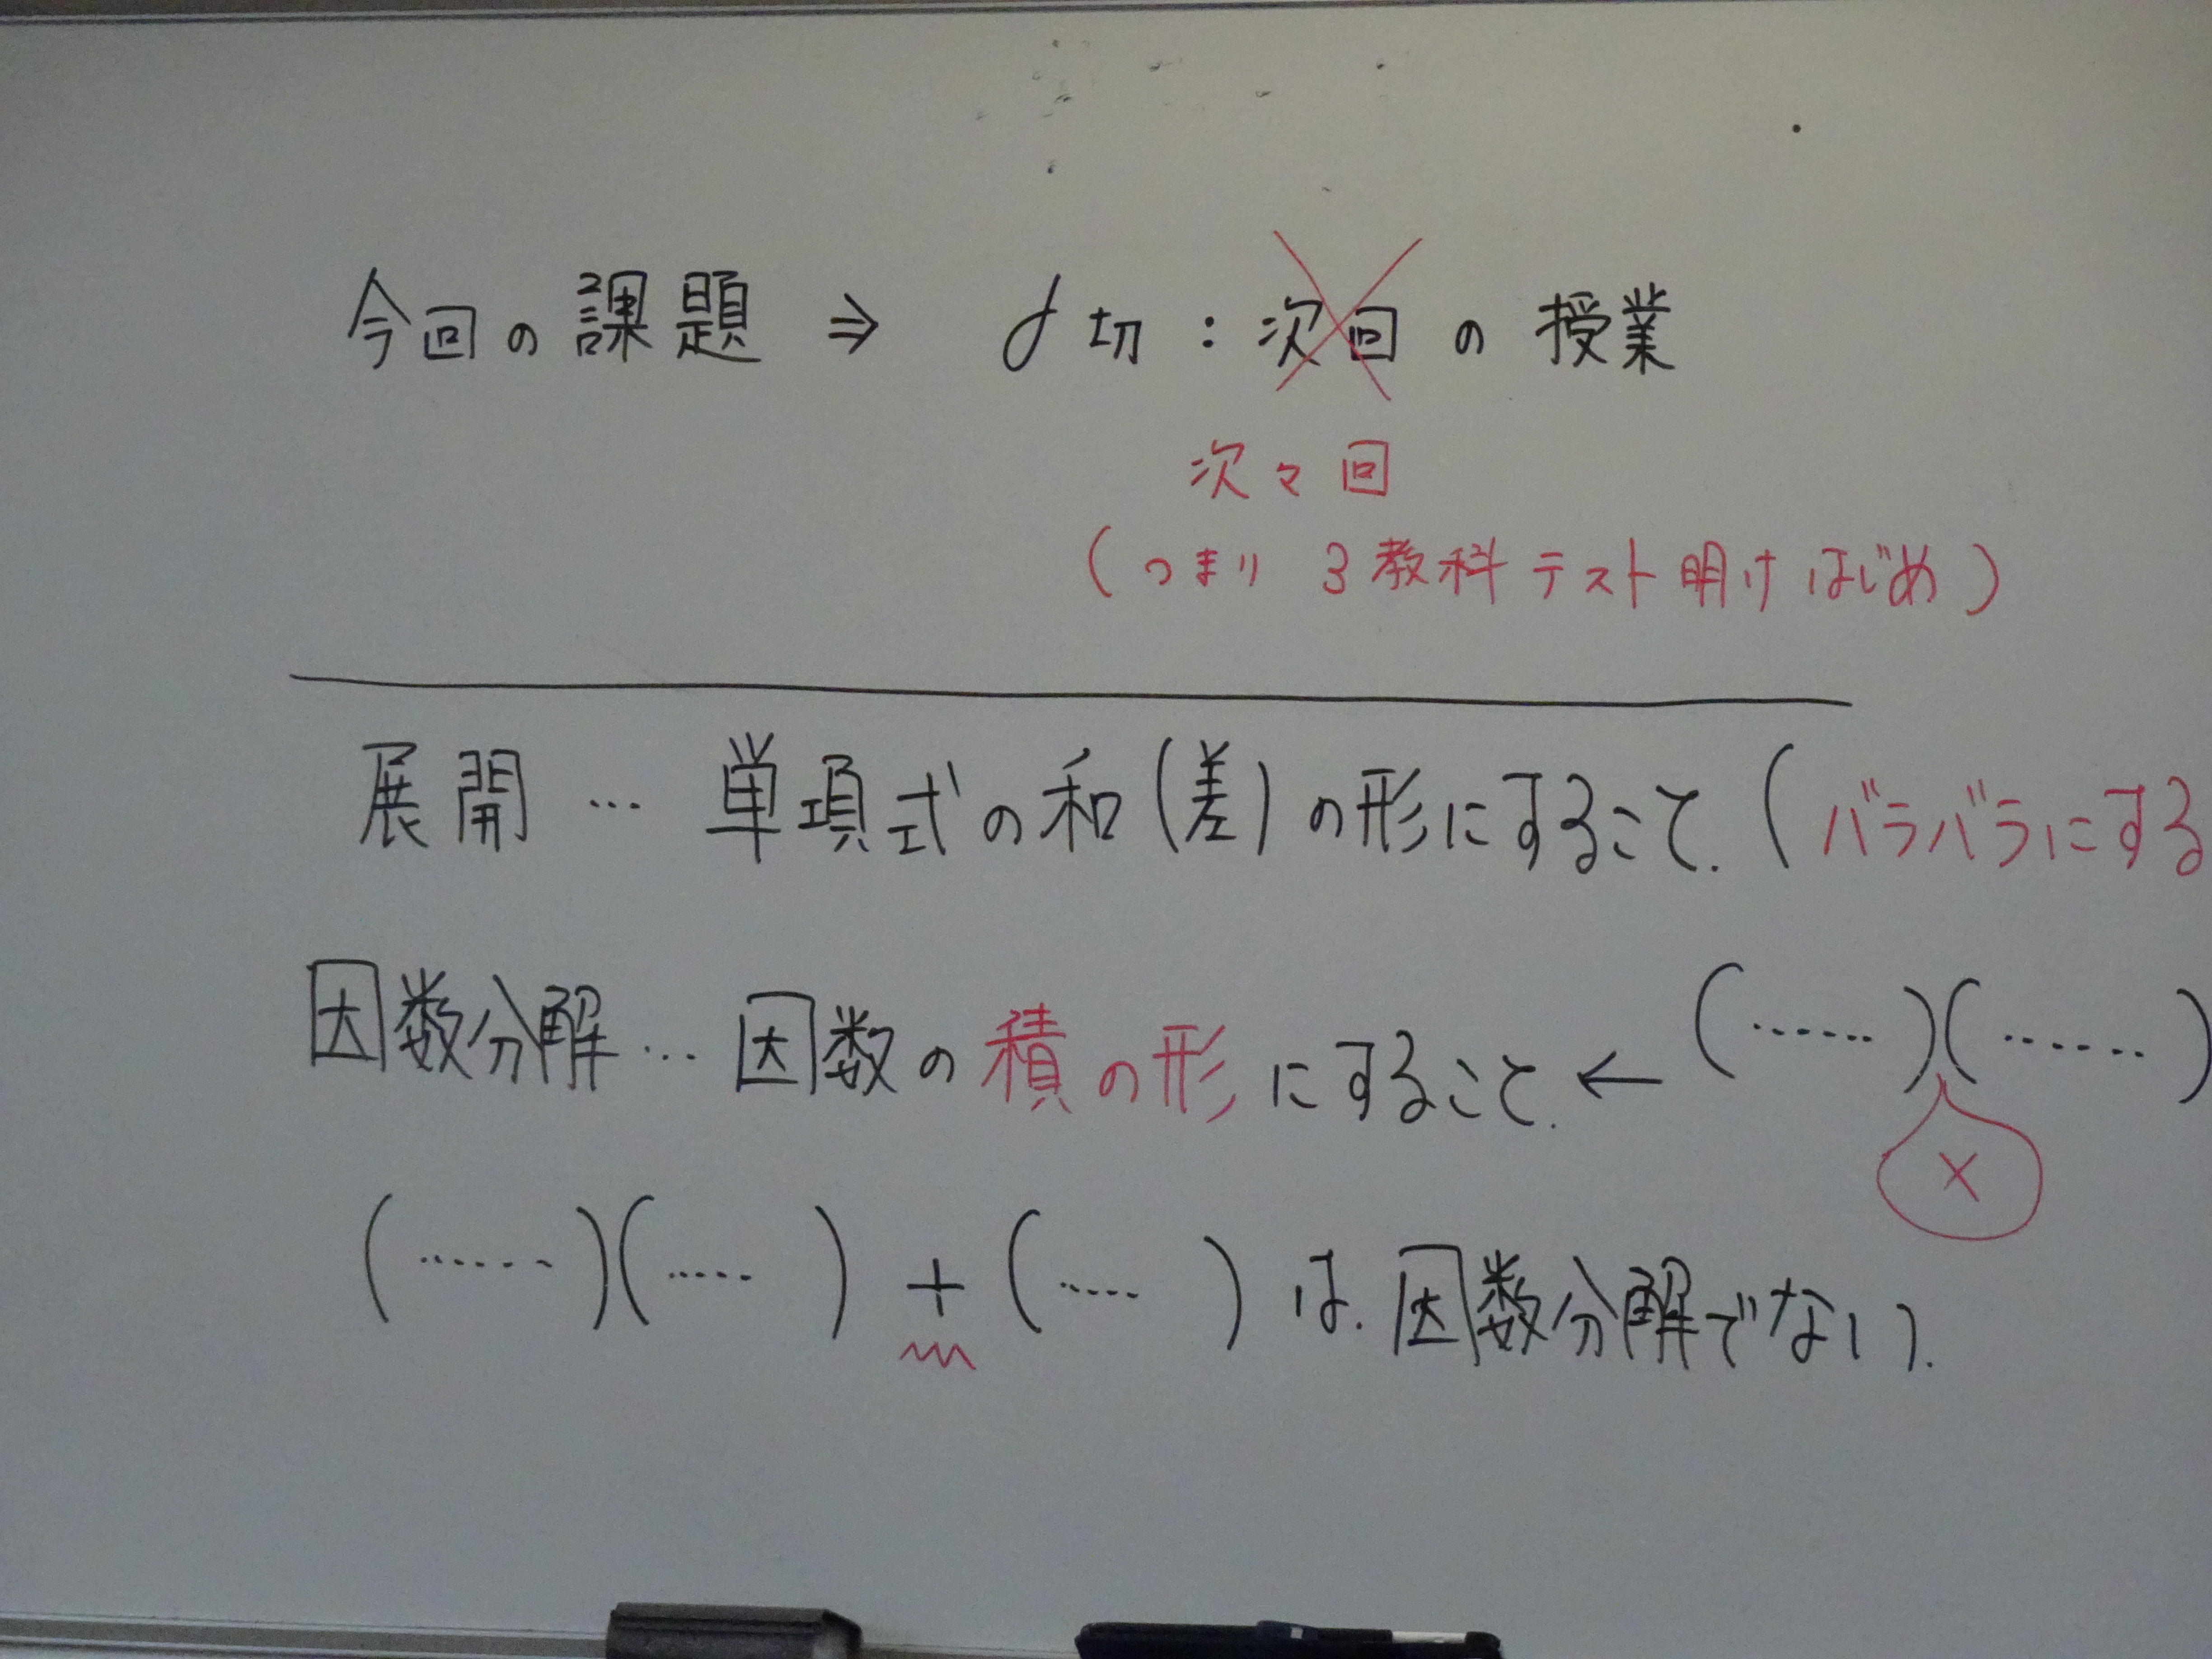 今回の課題 ⇒ 〆切：次回の授業
次々回
(つまり 3教科テスト明けはじめ)
展開 … 単項式の和(差)の形にすること. (バラバラにする
因数分解 … 因数の積の形にすること. ← (……)(……)
×
(……)(……) + (……) は. 因数分解でない.